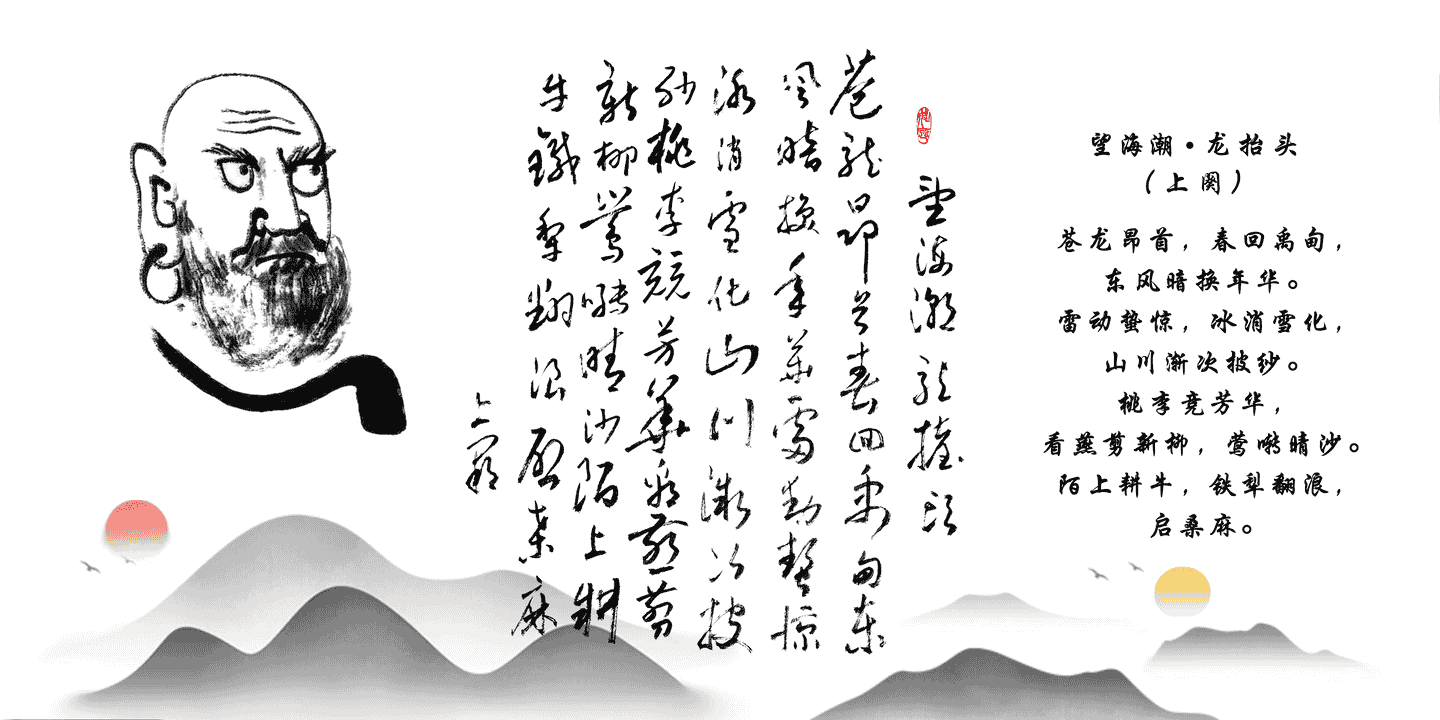 望海潮龙抬头
苍龙昂首春回禹甸东
风暗换年华雷动蛰惊
冰消雪化山川渐次披
纱桃李竞芳华看燕剪
新柳莺啭晴沙陌上耕
牛铁犁翻浪启桑麻
上阕
望海潮·龙抬头
（上阕）
苍龙昂首，春回禹甸，
东风暗换年华。
雷动蛰惊，冰消雪化，
山川渐次披纱。
桃李竞芳华，
看燕剪新柳，莺啭晴沙。
陌上耕牛，铁犁翻浪，
启桑麻。